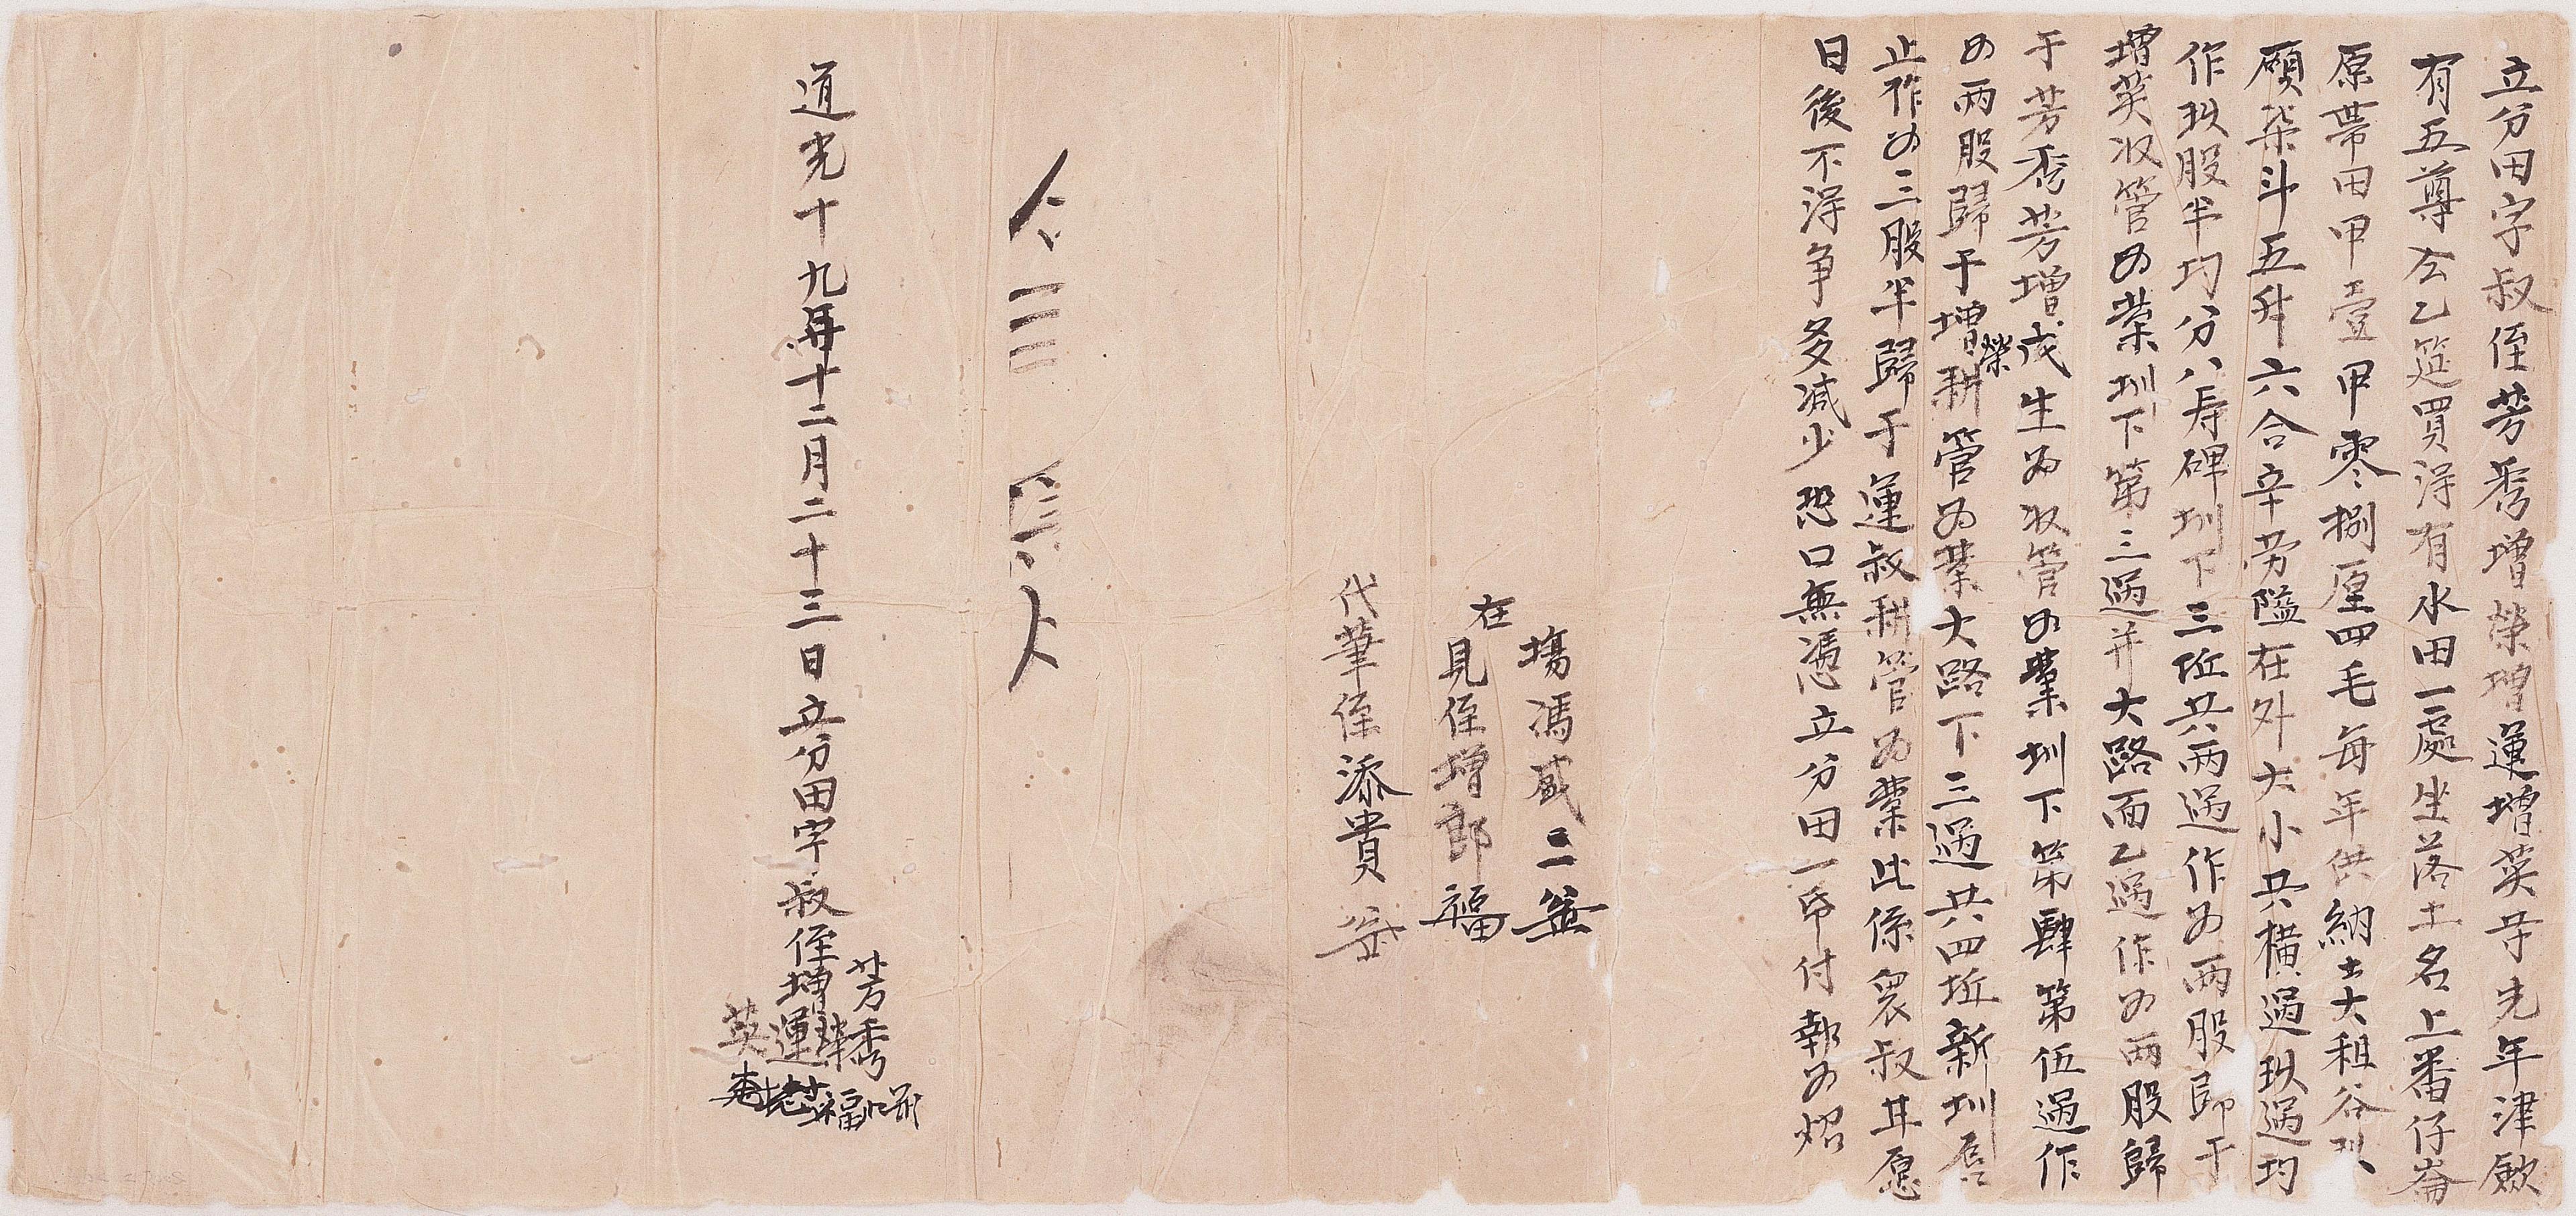 立分田字叔侄芳秀增榮增運增英等先年津歛
有五尊公乙筵買得有水田一處坐落土名上番仔崙
原帶田甲壹甲零捌厘四毛每年供納大租谷
碩柒斗五升六合辛勞隘在外大小共橫過玖過均
作玖股半均分八寿碑圳下三坵共兩過作為兩股歸于
增英收管為業圳下第三過并大路面乙過作為兩股歸
于芳秀芳增成生為收管為業圳下第肆第伍過作
為兩股歸于增榮耕管為業大路下三過共四坵新圳
止作為三股半歸于運叔耕管為業此係眾叔甘愿
日後不得爭多減少恐口無憑立分田一帋付執為炤
在
塲馮盛二
見侄增郎 福
代筆侄添貴
道光十九年十二月二十三日立分田字叔侄
芳秀
增榮
運
英